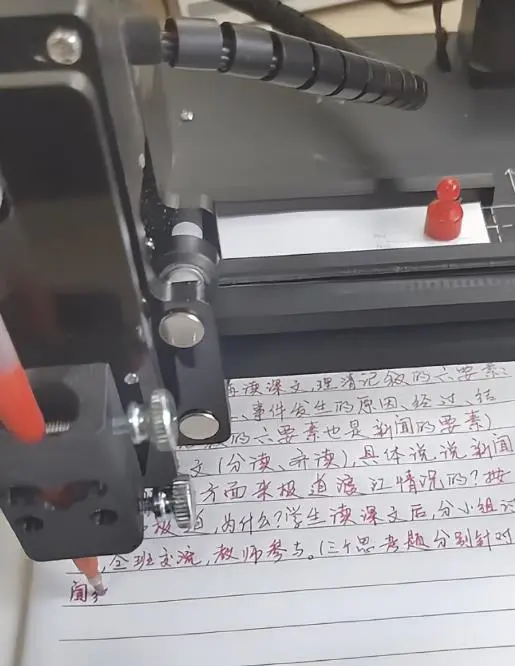 读课文,理清记叙的六要素、
、事件发生的原因、经过、结
的六要素也是新闻的要素)
文(分读、齐读),具体说,说新闻
方面来报道渡江情况的?按
报道,为什么?学生读课文后,分小组讨
,全班交流,教师参与。(三个思考题分别针对
闻